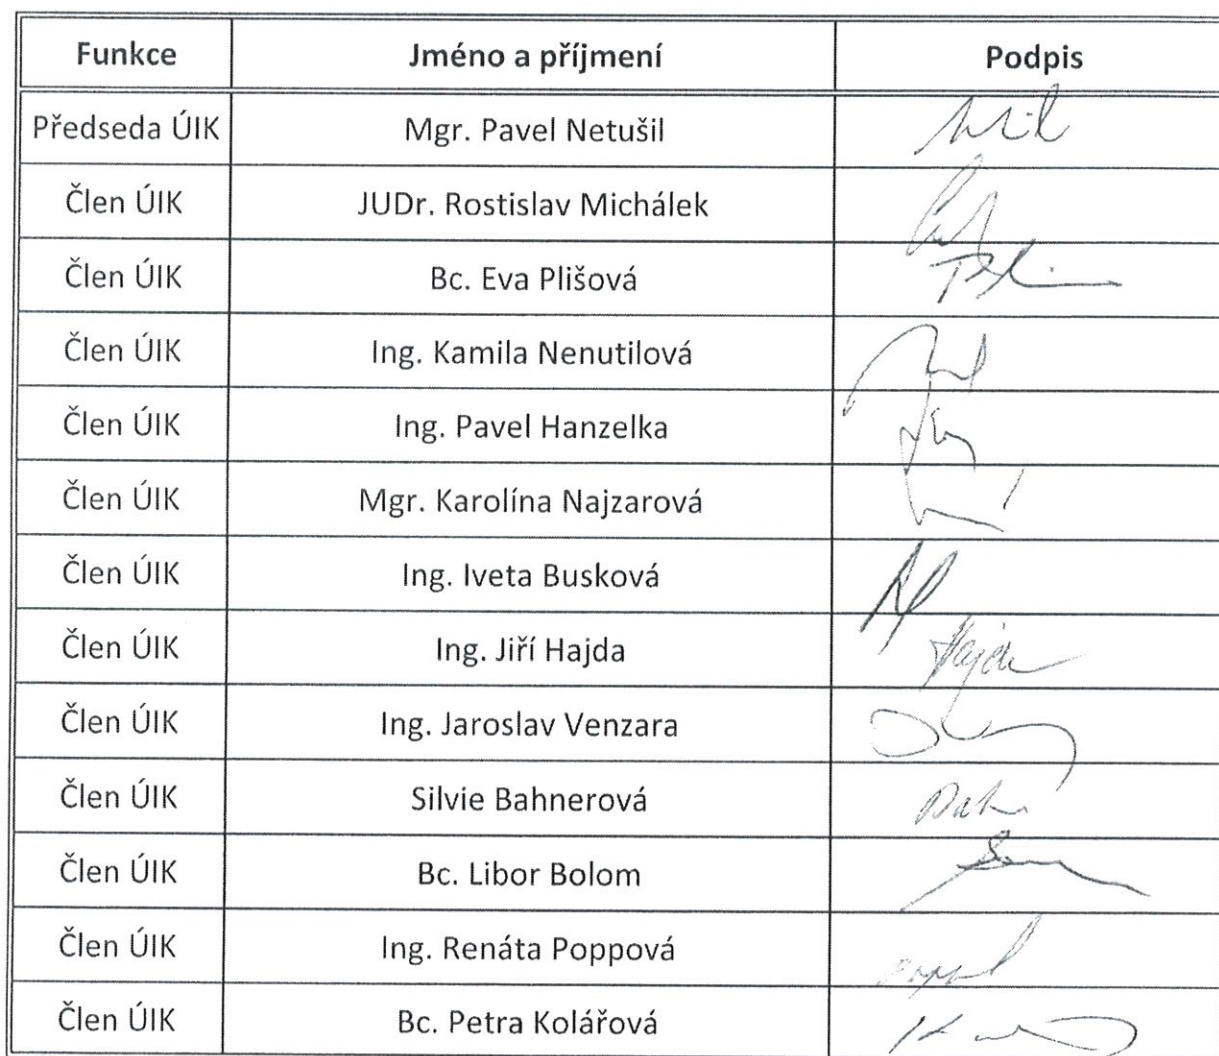 Funkce Jméno a příjmení Podpis
Předseda ÚIK Mgr. Pavel Netušil
Člen ÚIK JUDr. Rostislav Michálek
Člen ÚIK Bc. Eva Plišová
Člen ÚIK Ing. Kamila Nenutilová
Člen ÚIK Ing. Pavel Hanzelka
Člen ÚIK Mgr. Karolína Najzarová
Člen ÚIK Ing. Iveta Busková
Člen ÚIK Ing. Jiří Hajda
Člen ÚIK Ing. Jaroslav Venzara
Člen ÚIK Silvie Bahnerová
Člen ÚIK Bc. Libor Bolom
Člen ÚIK Ing. Renáta Poppová
Člen ÚIK Bc. Petra Kolářová